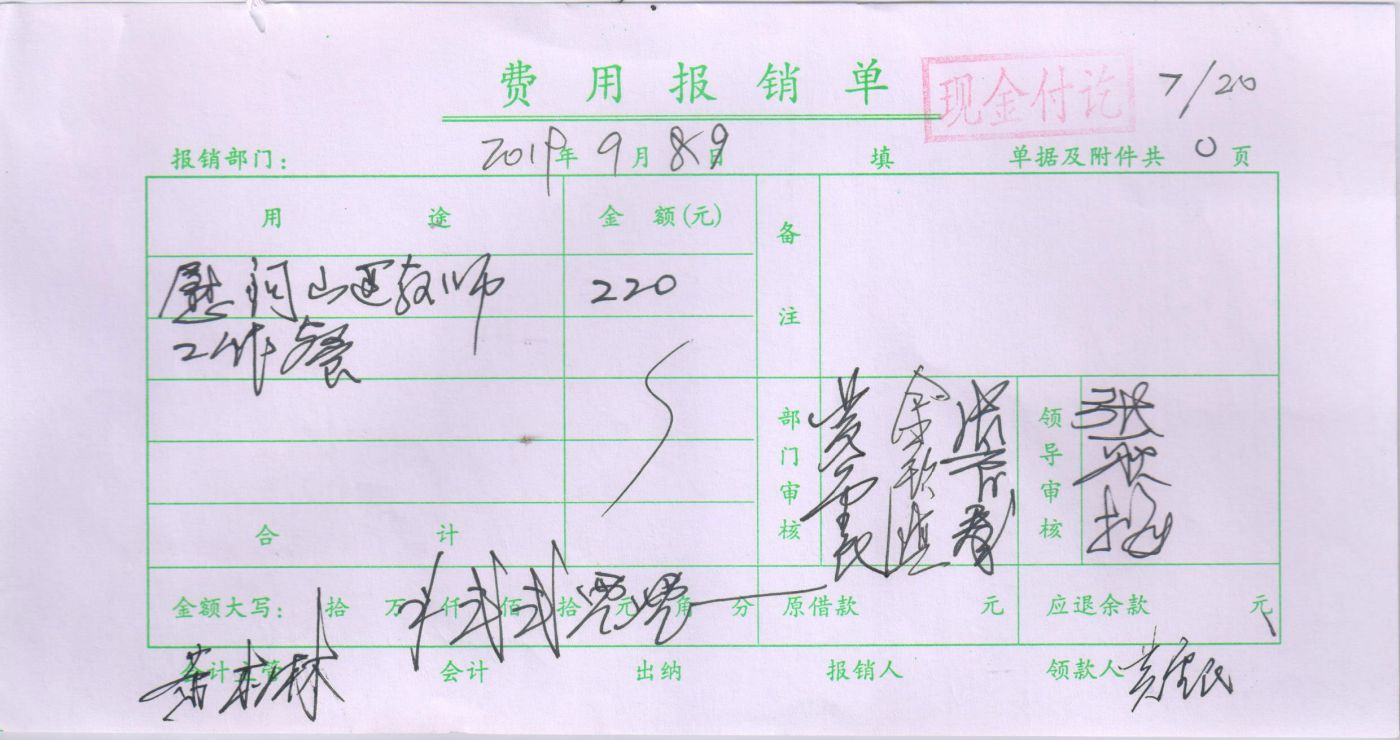 费用报销单 现金付讫 7/20
报销部门： 2019年9月 9日 填 单据及附件共 0 页
用途 金额(元) 备注
慰问山区教师 220
工作餐
部门审核 领导审核
合计
金额大写： 拾 万 仟 贰佰 贰拾 零元 零角 分 原借款 元 应退余款 元
会计主管 会计 出纳 报销人 领款人